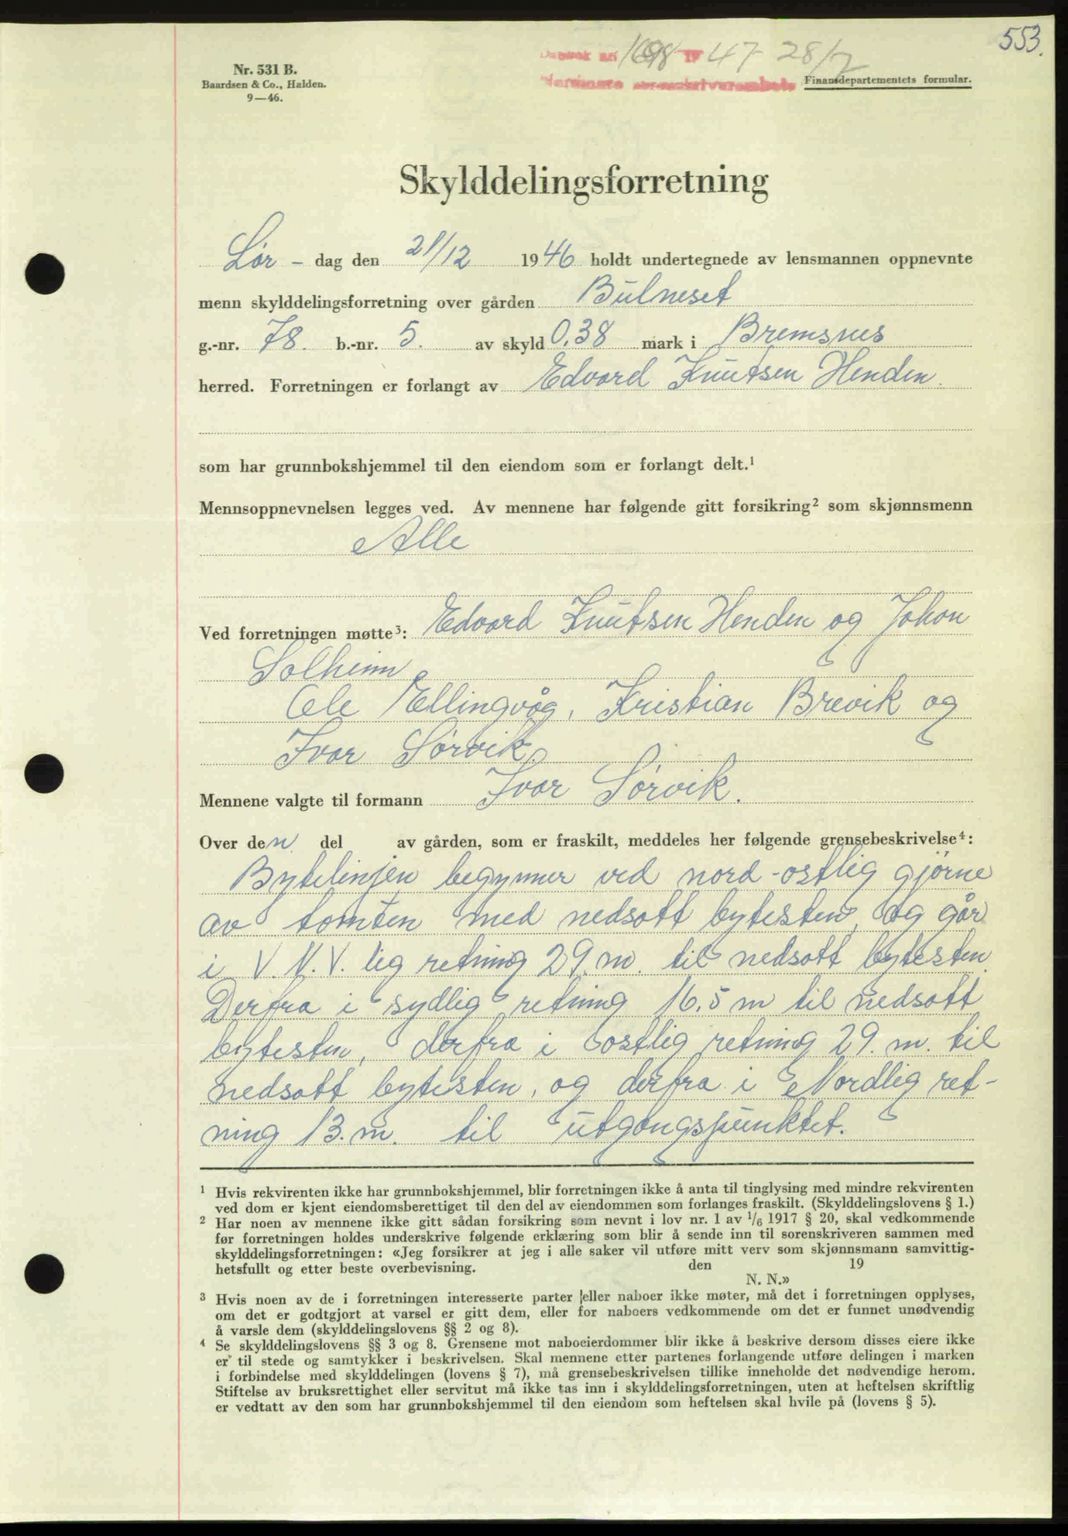 553.
Dagbok nr. 1698 19 47 28/7
Nordmøre sorenskriverembete
Nr. 531 B.
Baardsen & Co., Halden.
9—46.
Finansdepartementets formular.
Skylddelingsforretning
Lør - dag den 21/12 1946 holdt undertegnede av lensmannen oppnevnte
menn skylddelingsforretning over gården Bulneset
g.-nr. 78. b.-nr. 5. av skyld 0,38 mark i Bremsnes
herred. Forretningen er forlangt av Edvard Knutsen Henden.
som har grunnbokshjemmel til den eiendom som er forlangt delt.¹
Mennsoppnevnelsen legges ved. Av mennene har følgende gitt forsikring² som skjønnsmenn
Alle
Ved forretningen møtte³: Edvard Knutsen Henden og Johan
Solheim
Ole Ellingvåg, Kristian Brevik og
Ivar Sørvik.
Mennene valgte til formann Ivar Sørvik.
Over den del av gården, som er fraskilt, meddeles her følgende grensebeskrivelse⁴:
Bytelinjen begynner ved nord-ostlig gjørne
av tomten med nedsatt bytesten, og går
i V.N.V. lig retning 29. m. til nedsatt bytesten.
Derfra i sydlig retning 16,5 m til nedsatt
bytesten, derfra i ostlig retning 29. m. til
nedsatt bytesten, og derfra i Nordlig ret-
ning 13. m. til utgangspunktet.
¹ Hvis rekvirenten ikke har grunnbokshjemmel, blir forretningen ikke å anta til tinglysing med mindre rekvirenten
ved dom er kjent eiendomsberettiget til den del av eiendommen som forlanges fraskilt. (Skylddelingslovens § 1.)
² Har noen av mennene ikke gitt sådan forsikring som nevnt i lov nr. 1 av 1/6 1917 § 20, skal vedkommende
før forretningen holdes underskrive følgende erklæring som blir å sende inn til sorenskriveren sammen med
skylddelingsforretningen: «Jeg forsikrer at jeg i alle saker vil utføre mitt verv som skjønnsmann samvittig-
hetsfullt og etter beste overbevisning. den 19
N. N.»
³ Hvis noen av de i forretningen interesserte parter eller naboer ikke møter, må det i forretningen opplyses,
om det er godtgjort at varsel er gitt dem, eller for naboers vedkommende om det er funnet unødvendig
å varsle dem (skylddelingslovens §§ 2 og 8).
⁴ Se skylddelingslovens §§ 3 og 8. Grensene mot naboeierdommer blir ikke å beskrive dersom disses eiere ikke
er til stede og samtykker i beskrivelsen. Skal mennene etter partenes forlangende utføre delingen i marken
i forbindelse med skylddelingen (lovens § 7), må grensebeskrivelsen tillike inneholde det nødvendige herom.
Stiftelse av bruksrettighet eller servitut må ikke tas inn i skylddelingsforretningen, uten at heftelsen skriftlig
er vedtatt av den som har grunnbokshjemmel til den eiendom som heftelsen skal hvile på (lovens § 5).